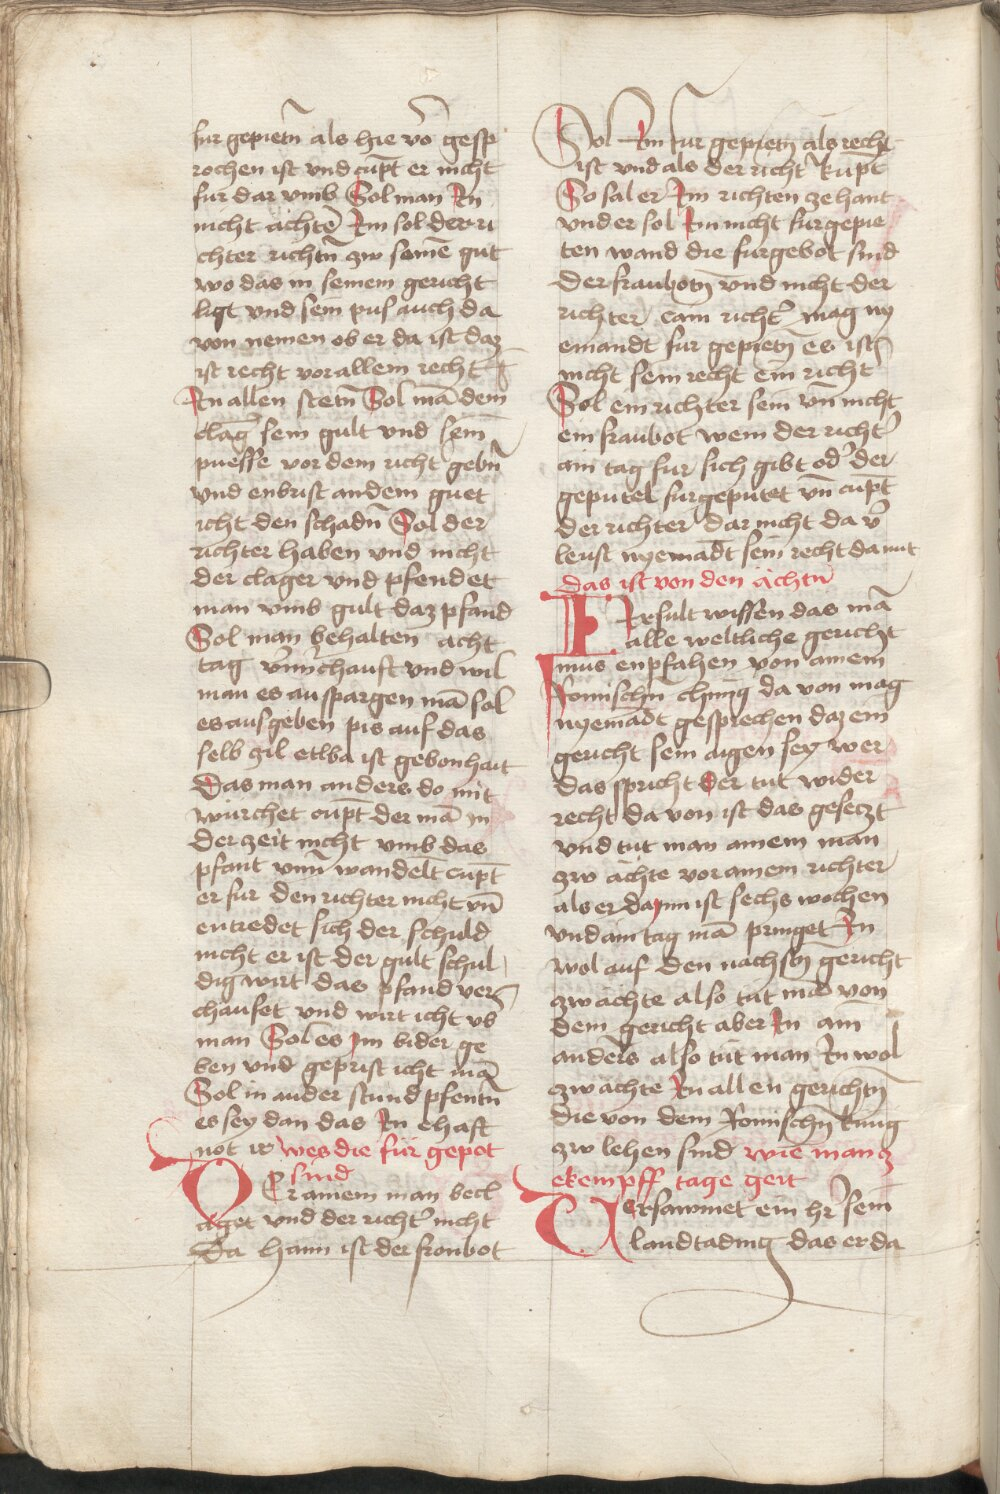 fur gepietn̄ als hie vō gesp
rochen ist vnd cūpt er nicht
fur dar vmb Sol man In
nicht ächtē Im sol der ri
chter richtn̄ zw seinē gut
wo das in seinem gericht
ligt vnd sein pus auch da
von nemen ob er da ist daz
ist recht vor allem recht
In allen stetn̄ Sol mā dem
clag̉ sein gult vnd sein
puesse vor dem richt̉ gebn̄
vnd enbrist an dem guet
icht den schadn̄ Sol der
richter haben vnd nicht
der clager vnd pfendet
man vmb gult daz pfand
Sol man behalten acht
tag vnuerchauft vnd wil
man es auspargen mā sol
es ausgeben pis auf das
selb zil etwa ist gebonhait
Das man anders do mit
würchet cūpt der mā in
der zeit nicht vmb das
pfant vnuerwandelt cūpt
er fur den richter nicht vn̄
entredet sich der schuld
nicht er ist der gült schul
dig wirt das pfand ver
chaufet vnd wirt icht vb̉
man Sol es im bider ge
ben vnd geprist icht mā
Sol in ander stund pfentn̄
es sey dan das In ehaft
not ir wes die für gepot
sind
Der ainem man becl
aget vnd der richt̉ nicht
Da haim ist der fronbot
Sol Im fur gepietn̄ als recht
ist vnd als der richt̉ kūpt
So sal er Im richten zehant
vnd er sol Im nicht furgepie
ten wand die furgebot sind
der fraubotn̄ vnd nicht der
richter cain richt̉ mag ny
emandt fur gepietn̄ es ist
nicht sein recht ein richt̉
Sol ein richter sein vn̄ nicht
ein fraubot wem der richt̉
ain tag fur sich gibt od̉ der
geputel furgeputet vn̄ cūpt
der richter dar nicht da v̉
leust nyemādt sein recht da mit
das ist von den ächtn̄
Ir sult wissen das mā
alle weltliche gericht
mus enpfahen von ainem
Romischn̄ chunig da von mag
nyemādt gesprechen daz ein
gericht sein aigen sey wer
das spricht der tut wider
recht da von ist das gesetzt
vnd tut man ainem man
zw ächte vor ainem richter
als er dar inn ist sechs wochen
vnd ain tag mā pringet In
wol auf den nachstn̄ gericht
zw ächte also tut mā von
dem gericht aber In ain
anders also tüt man In wol
zw ächte In allen gerichtn̄
die von dem Romischn̄ kung
zw lehen sind wie man z
ekempff tage geit
Versawmet ein hr̉ sein
landtading das er da